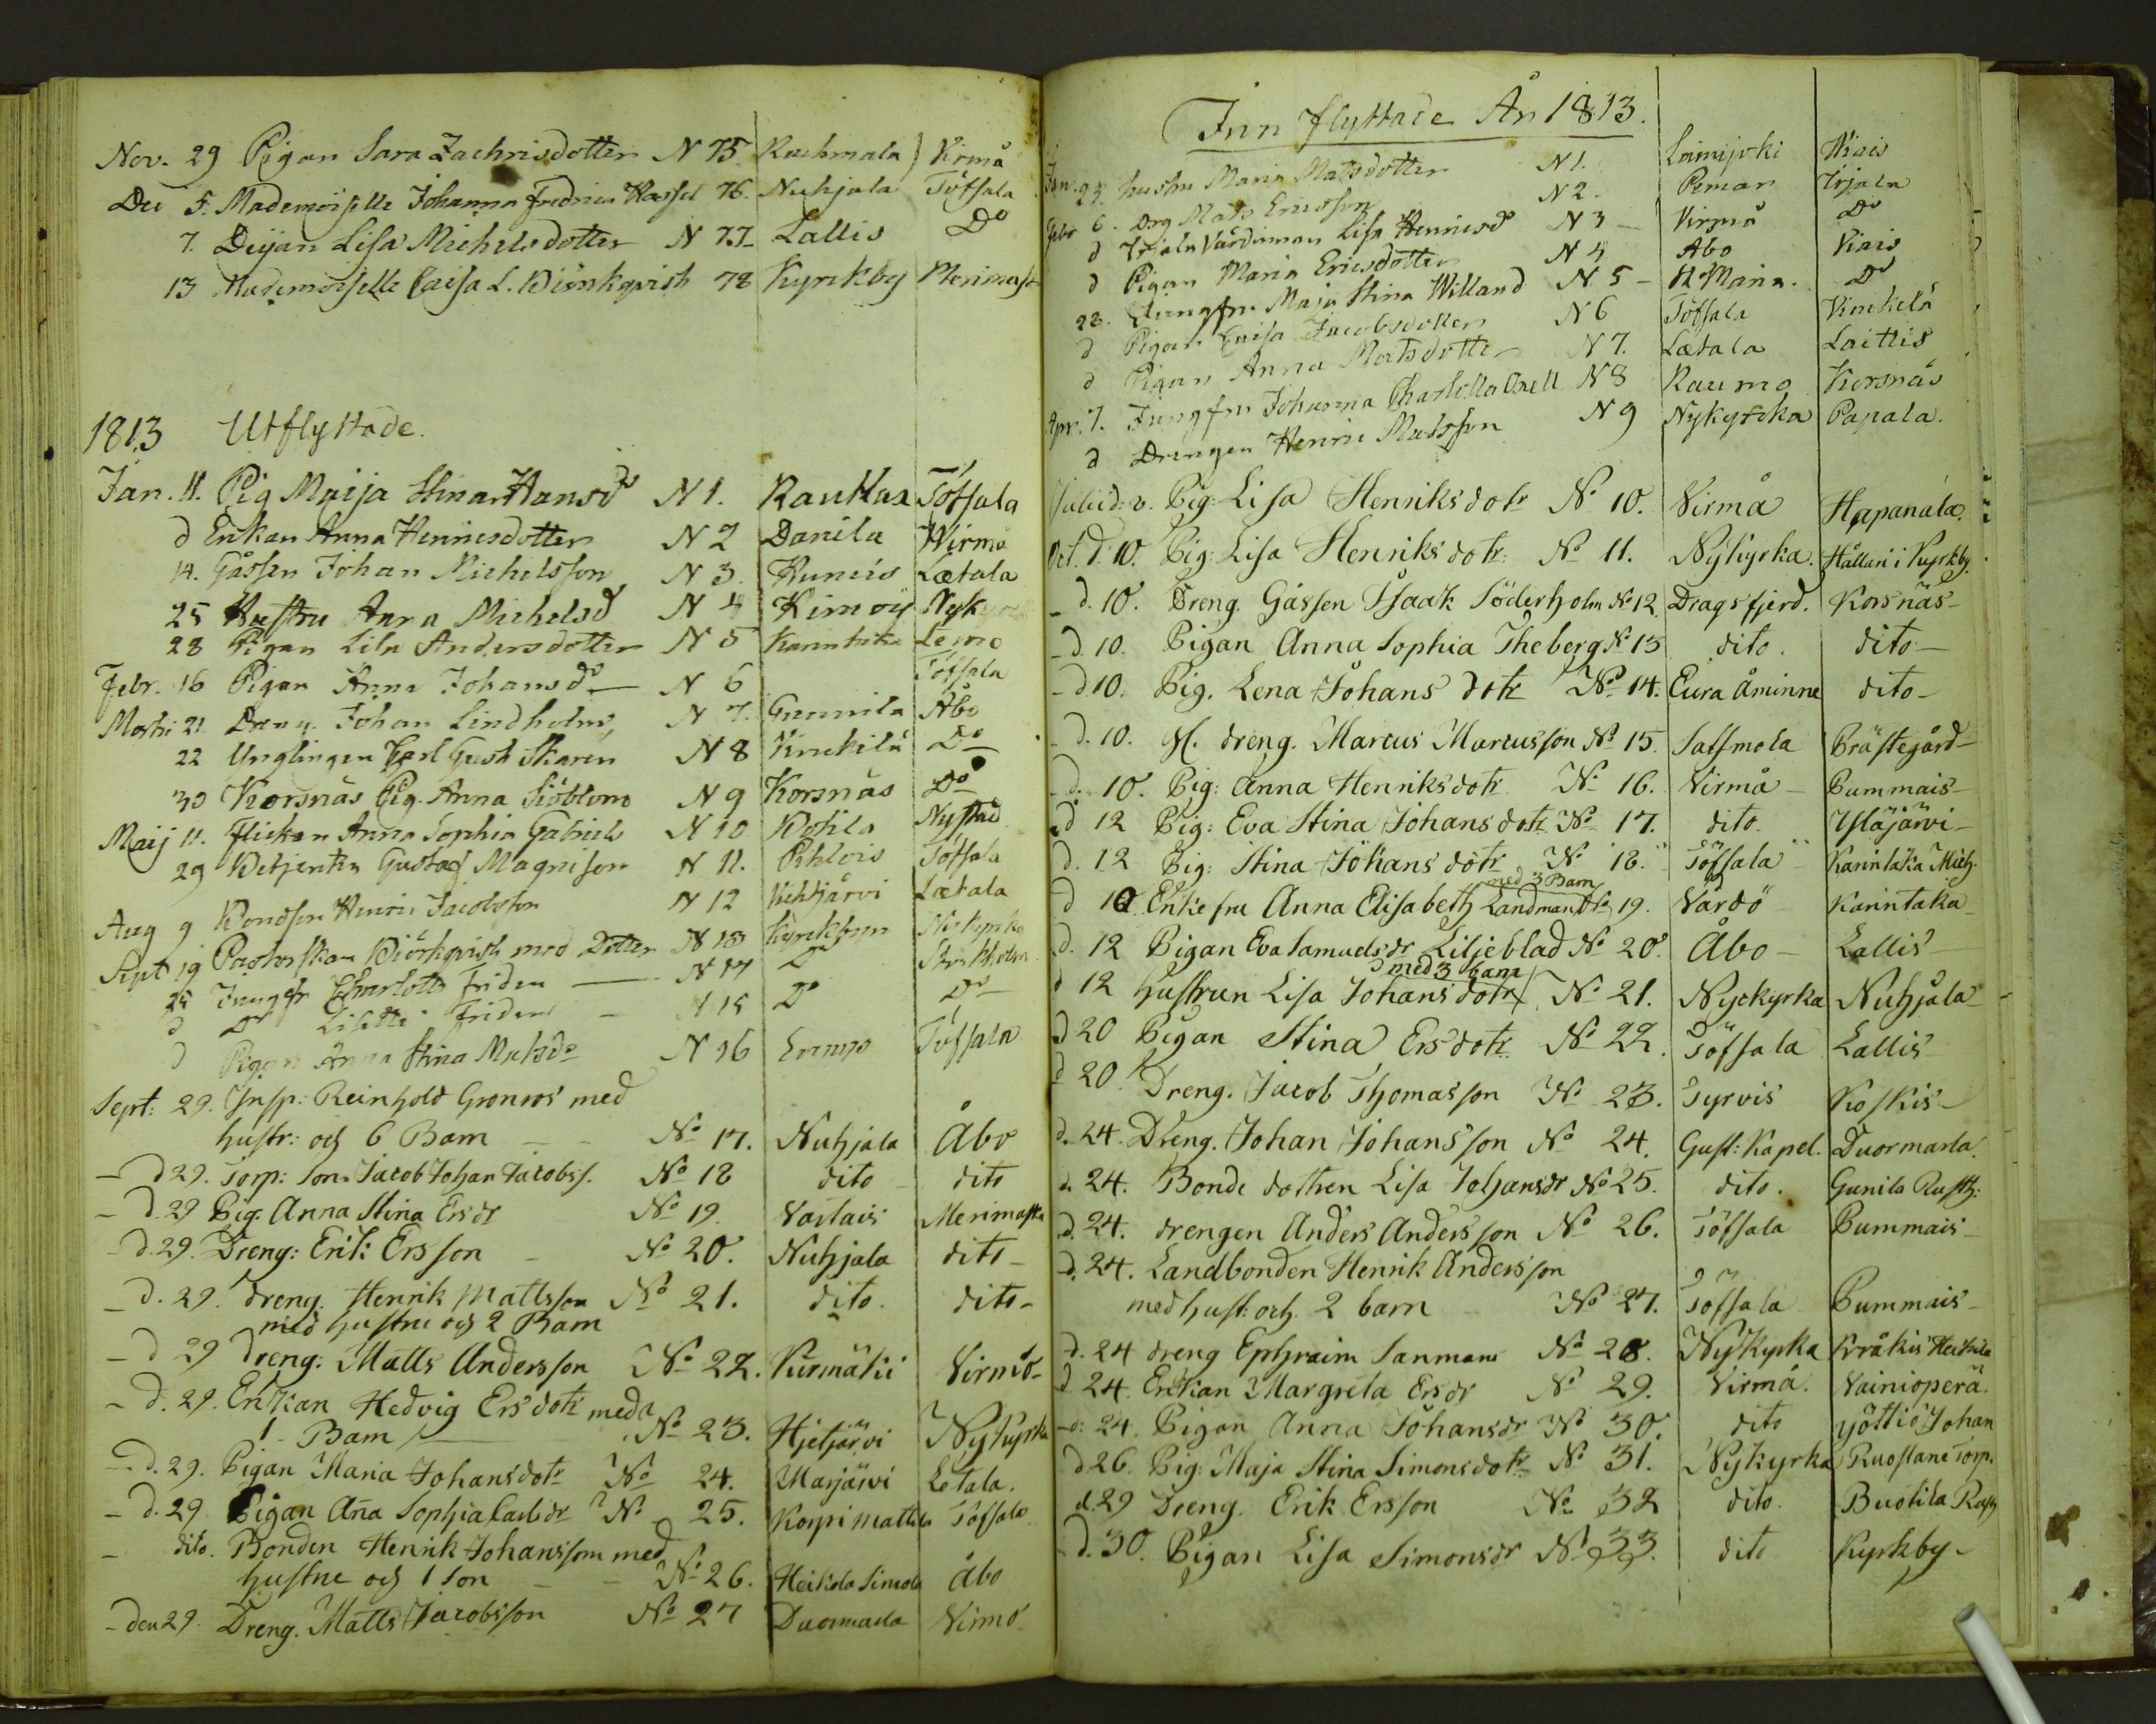 Nov. 29 Pigan Sara Zachrisdotter N 75. Rachmala Virmå
Dec 5. Mademoiselle Johanna Fredrica Hassel 76. Nuhjala Töfsala
7. Deijan Lisa Michelsdotter N 77. Lallis Do
13 Mademoiselle Caisa L. Biörkqvist 78 Kyrckby Merimask
1813 Utflyttade.
Jan. 11. Pig Maija Stina Hansdr N 1. Raukka Töfsala
d Enkan Anna Henricsdotter N 2 Danila Wirmå
14. Gåssen Johan Michelsson N 3. Hunois Letala
25 Hustru Anna Michelsd N 4 Kimoij Nykyrk
28 Pigan Lisa Andersdotter N 5 Kanntaka Lemo
Febr. 16 Pigan Anna Johansdr N 6 Töfsala
Martii 21 Dreng. Johan Lindholm N 7. Gunnila Åbo
22 Unglingen Carl Gust Skarén N 8 Vinckilä Do
30 Korsnäs Pig. Anna Siöblom N 9 Korsnäs Do
Maij 11. Flickan Anna Sophia Gabriels N 10 Kotila Nystad
29 Betjenten Gustaf Magnison N 11. Pehlvis Töfsala
Aug 9 Bondson Henric Jacobsson N 12 Vehtjärvi Letala
Sept 19 Pastorskan Biörkqvist med Dotter N 13 Kyrckbyn Nykyrka
25 Jungfr Charlotta Friden N 14 Do Stockholm
d Do Lisette Friden N 15 Do Do
d Pigan Anna Stina Matsdr N 16 Töfsala
Sept: 29. Insp: Reinhold Gronroos med
hustr: och 6 Barn No 17. Nuhjala Åbo
d 29. Torp: Son Jacob Johan Jacobss. No 18 dito dito
d. 29 Pig. Anna Stina Ersdr No 19. Vastais Merimasku
d. 29. Dreng: Erik Ersson No 20. Nuhjala dito
d. 29. dreng. Henrik Mattsson No 21. dito. dito
med hustru och 2 Barn
d 29 dreng. Matts Andersson No 22. Kurmäkii Virmo
d. 29. Enkan Hedvig Ersdotr med
1 Barn No 23. Hjetjärvi Nykyrka
d. 29. Pigan Maria Johansdotr No 24. Marjärvi Letala.
d. 29 Pigan Ana Sophia Carlsdr No 25. Korpimattila Töfsala
dito. Bonden Henrik Johansson med
hustru och 1 Son No 26. Heikola Simola Åbo
den 29. Dreng. Matts Jacobsson No 27 Duormarla Virmo
Inn flyttade År 1813.
Jan. 24. hustru Maria Matsdotter N 1. Loimijoki Wiais
Febr 6. Drg Mats Ericsson N 2. Pemar Irjala
d Irjala Värdinnan Lisa Henricsd N 3 Virmå Do
d Pigan Maria Ericsdotter N 4 Åbo Viais
23. Jungfru Maja Stina Willand N 5 St Maria. Do
d Pigan Caisa Jacobsdotter N 6 Töfsala Vinckelä
d Pigan Anna Matsdotter N 7. Letala Laittis
Apr. 7. Jungfru Johanna Charlotta Oxell N 8 Raumo Korsnäs
d Drengen Henric Matsson N 9 Nykyrcka Papala.
Julii d. 3. Pig: Lisa Henriksdotr No 10. Virmå Hapanala.
Oct. d. 10. Pig: Lisa Henriksdotr. No 11. Nykyrka. Hållari i Kyrkby.
d. 10. Dreng. Gåssen Isaak Söderholm No 12 Dragsfjerd. Korsnäs
d. 10. Pigan Anna Sophia Theberg No 13 dito. dito
d 10. Pig. Lena Johans dotr No 14. Eura åminne dito
d. 10. H. dreng. Marcus Marcusson No 15. Satsmola Prästegård
d. 10. Pig: Anna Henriksdotr No 16. Virmå Pummais
d 12 Pig: Eva Stina Johansdotr No 17. dito. Yläjärvi
d. 12 Pig: Stina Johans dotr No 18. Töfsala Kanntaka Mich.
med 3 Barn
d 12 Enkefru Anna Elisabeth Landman No 19. Vårdö Kanntaka
d. 12 Pigan Eva Samuelsdr Liljeblad No 20. Åbo Lallis
med 3 barn
d 12 hustrun Lisa Johansdotr No 21. Nyckyrka Nuhjala
d 20 Pigan Stina Ersdotr No 22. Töfsala Lallis
d 20. Dreng. Jacob Thomasson No 23. Tyrvis Koskis
d. 24. Dreng. Johan Johansson No 24. Gust: Kapel. Duormarla.
d. 24. Bonde dottren Lisa Johansdr No 25. dito. Gunila Rusth:
d. 24. drengen Anders Andersson No 26. Töfsala Pummais
d. 24. Landbonden Henrik Andersson
med hust: och 2 barn No 27. Töfsala Pummais
d. 24 dreng Ephraim Sanman No 28. Nykyrka Kråkis Heikila
d 24. Enkan Margreta Ersdr No 29. Virmå. Vainioperä.
d: 24. Pigan Anna Johansdr No 30. dito Yöttiö Johan
d 26. Pig: Maja Stina Simonsdotr No 31. Nykyrka Ruostane Torp.
d. 29 Dreng. Erik Ersson No 32 dito. Buotila
d. 30. Pigan Lisa Simonsdr No 33. dito Kyrkby